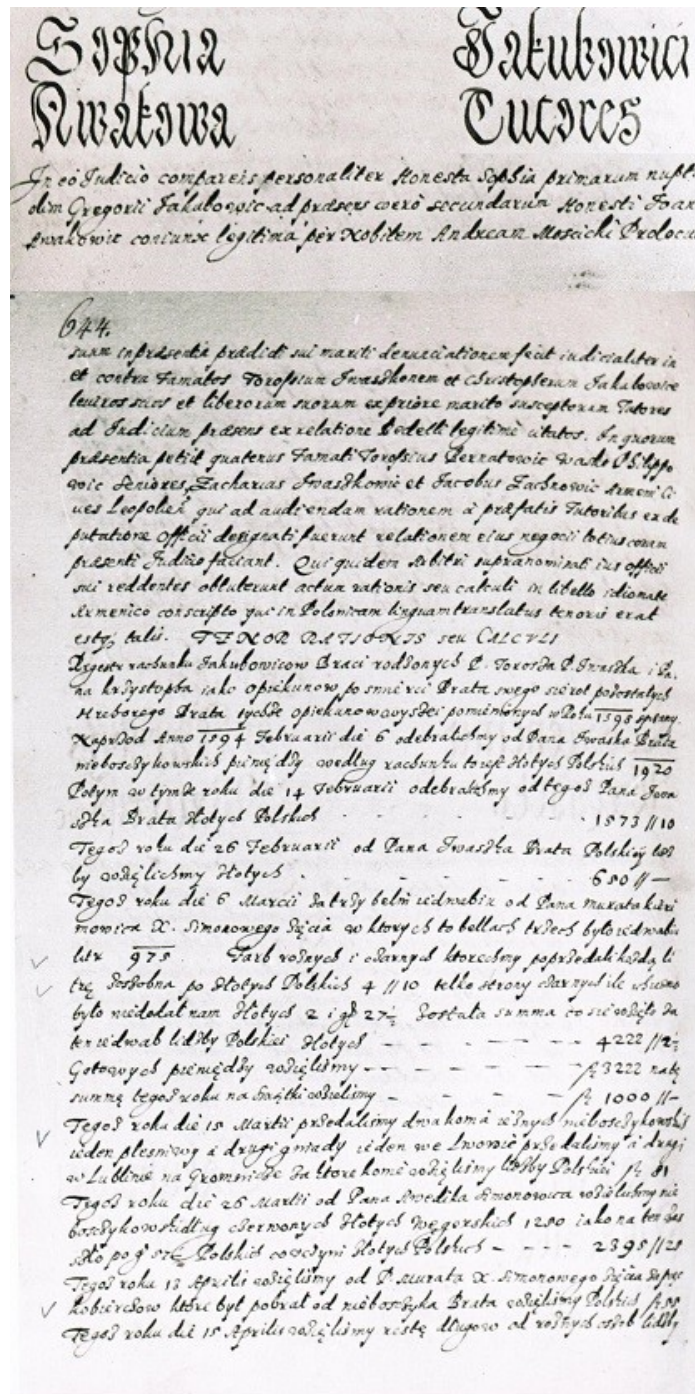 Sophia Jakubowici
Kwakowa Tutores
In eo Judicio compareis personaliter Honesta Sophia primarum nupt
olim Gregorii Jakubowic ad præsens verò secundarum Honesti Joan
Awakowic coniunx legitima per Nobilem Andream Moscicki Proloc
644.
suam in præsentia prædicti sui mariti denunciationem fecit iudicialiter in
et contra Famatos Torosium Jwaszkonem et Christopherum Jakubowice
leuiros suos et liberorum suorum ex priore marito susceptorum Tutores
ad Judicium præsens ex relatione Bedelli legitime citatos. In quorum
præsentia petiit quatenus Famati Torosius Bernatowic Wasko Philippo
wic Seniores, Zacharias Jwaszkowic et Jacobus Zachnowic Armeni Ci
ues Leopolien qui ad audiendam rationem à præfatis Tutoribus ex de
putatione Officii designati fuerunt relationem eius negocii totius coram
præsenti Judicio faciant. Qui quidem Arbitri supranominati ius officii
sui reddentes obtulerunt actum rationis seu calculi in libello idiomate
Armenico conscripto qui in Polonicam linguam translatus tenoris erat
estq; talis. TENOR RATIONIS seu CALCVLI
Regestr rachunku Jakubowicow Braci rodzonych P. Torosza P. Jwaszka i Pa
na Krzysztopha iako opiekunow po smierci Brata swego sierot pozostałych
Hreborego Brata tychże opiekunow wyszei pomienionych w Roku 1595
Naprzod Anno 1594 Februarii die 6 odebralichmy od Pana Jwaska Brata
nieboszczykowskich pieniędzy według rachunku to iest złotych Polskich 1920
Potym w tymże roku die 14 Februarii odebralismy od tegoż Pana Jwa
szka Brata złotych Polskich - - - 1573 //10
Tegoż roku die 26 Februarii od Pana Jwaszka Brata Polskiey licz
by wzięlichmy złotych - - - 650 //—
Tegoż roku die 6 Marcii za trzy bele iedwabiu od Pana Murata
mowica X. Simonowego zięcia w ktorych to bellach trzech było iedwabiu
litr 975 farb roznych i czarnych ktorechmy poprzedali każdą li
trę zosobna po złotych Polskich 4 //10 telko strony czarnych ile
było niedodał nam złotych 2 i gr 27½ została summa co sie wzięło za
ten iedwab liczby Polskiei złotych - - - 4222 //2½
Gotowych pieniędzy wzięlismy - - - fl 3222 na tę
summę tegoż roku na wzięlismy - - - fl 1000 //—
Tegoż roku die 15 Martii przedalismy dwa konia nieboszczykowskich
ieden plesniwy a drugi gniady ieden we Lwowie przedalismy a drugi
w Lublinie na Gromnice za ktore konie wzięlismy liczby Polskiei fl 81
Tegoż roku die 26 Martii od Pana Awedika Simonowica wzielichmy nie
boszczykowski dług czerwonych złotych węgerskich 1250 iako na ten czas
szło po Polskich co czyni złotych Polskich - - - 2395 //25
Tegoż roku 13 Aprilis wzięlismy od P. Murata X. Simonowego zięcia
kobiercow ktore był pobrał od nieboszczyka Brata wzięlismy Polskich fl 55
Tegoż roku die 15 Aprilis wzięlismy resztę długow od rożnych osob liczby